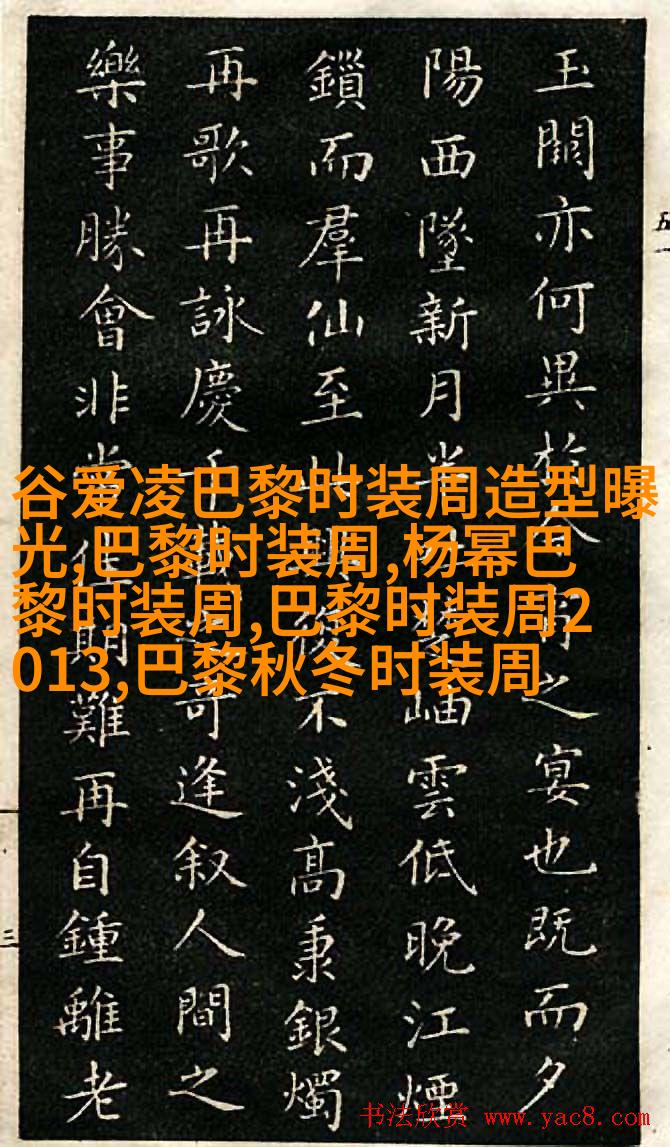 玉闕亦何異於今宵之宴也既而夕
陽西墜新月半楚岫雲低晚江煙
鎖而羣仙至此興復不淺高秉銀燭
再歌再詠慶千載奇逢叙人間之
樂事勝會非常佳期難再自鍾離老
谷爱凌巴黎时装周造型曝
光,巴黎时装周,杨幂巴
黎时装周,巴黎时装周2
013,巴黎秋冬时装周
五
三
书法欣赏 www.yac8.com